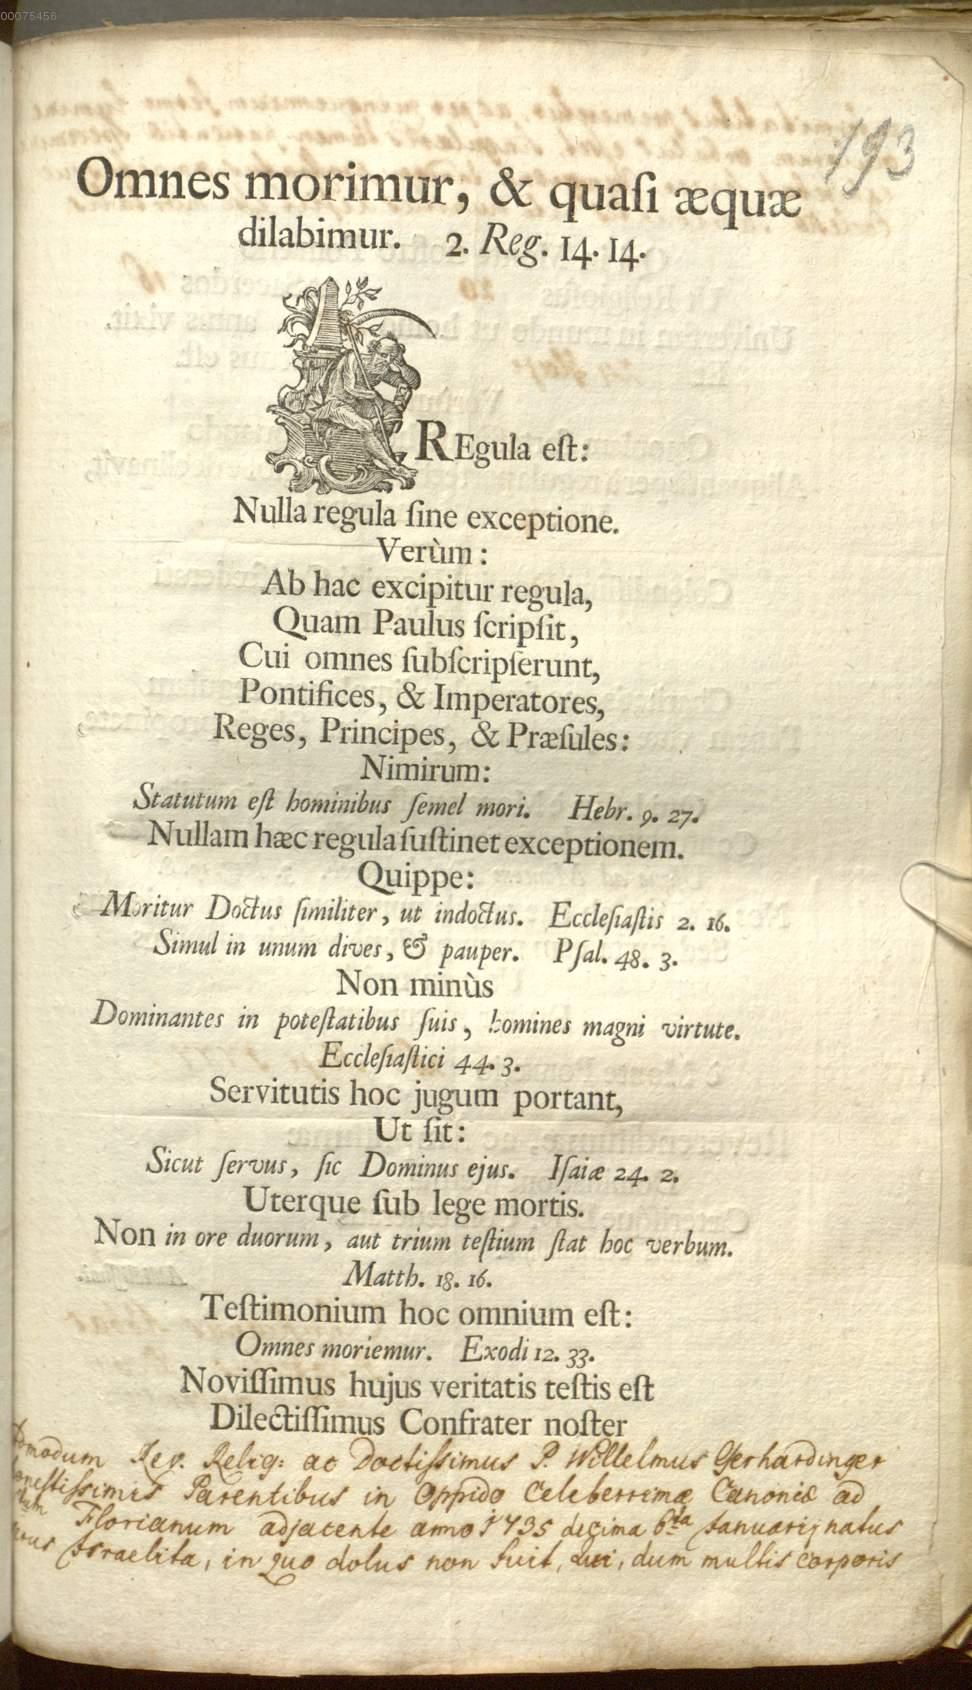 00075456
193
Omnes morimur, & quaſi æquæ
dilabimur. 2. Reg. 14. 14.
REgula eſt:
Nulla regula ſine exceptione.
Verùm:
Ab hac excipitur regula,
Quam Paulus ſcripſit,
Cui omnes ſubſcripſerunt,
Pontifices, & Imperatores,
Reges, Principes, & Præſules:
Nimirum:
Statutum eſt hominibus ſemel mori. Hebr. 9. 27.
Nullam hæc regula ſuſtinet exceptionem.
Quippe:
Moritur Doctus ſimiliter, ut indoctus. Eccleſiaſtis 2. 16.
Simul in unum dives, & pauper. Pſal. 48. 3.
Non minùs
Dominantes in poteſtatibus ſuis, homines magni virtute.
Eccleſiaſtici 44. 3.
Servitutis hoc jugum portant,
Ut ſit:
Sicut ſervus, ſic Dominus ejus. Iſaiæ 24. 2.
Uterque ſub lege mortis.
Non in ore duorum, aut trium teſtium ſtat hoc verbum.
Matth. 18. 16.
Teſtimonium hoc omnium eſt:
Omnes moriemur. Exodi 12. 33.
Noviſſimus hujus veritatis teſtis eſt
Dilectiſſimus Confrater noſter
Rev. Relig: ac Doctiſsimus P. Willelmus Gerhardinger
Parentibus in Oppido Celeberrimæ Canoniæ ad
Florianum adjacente anno 1735 decima 6ta Januarij natus
Israelita, in quo dolus non fuit, qui, dum multis corporis